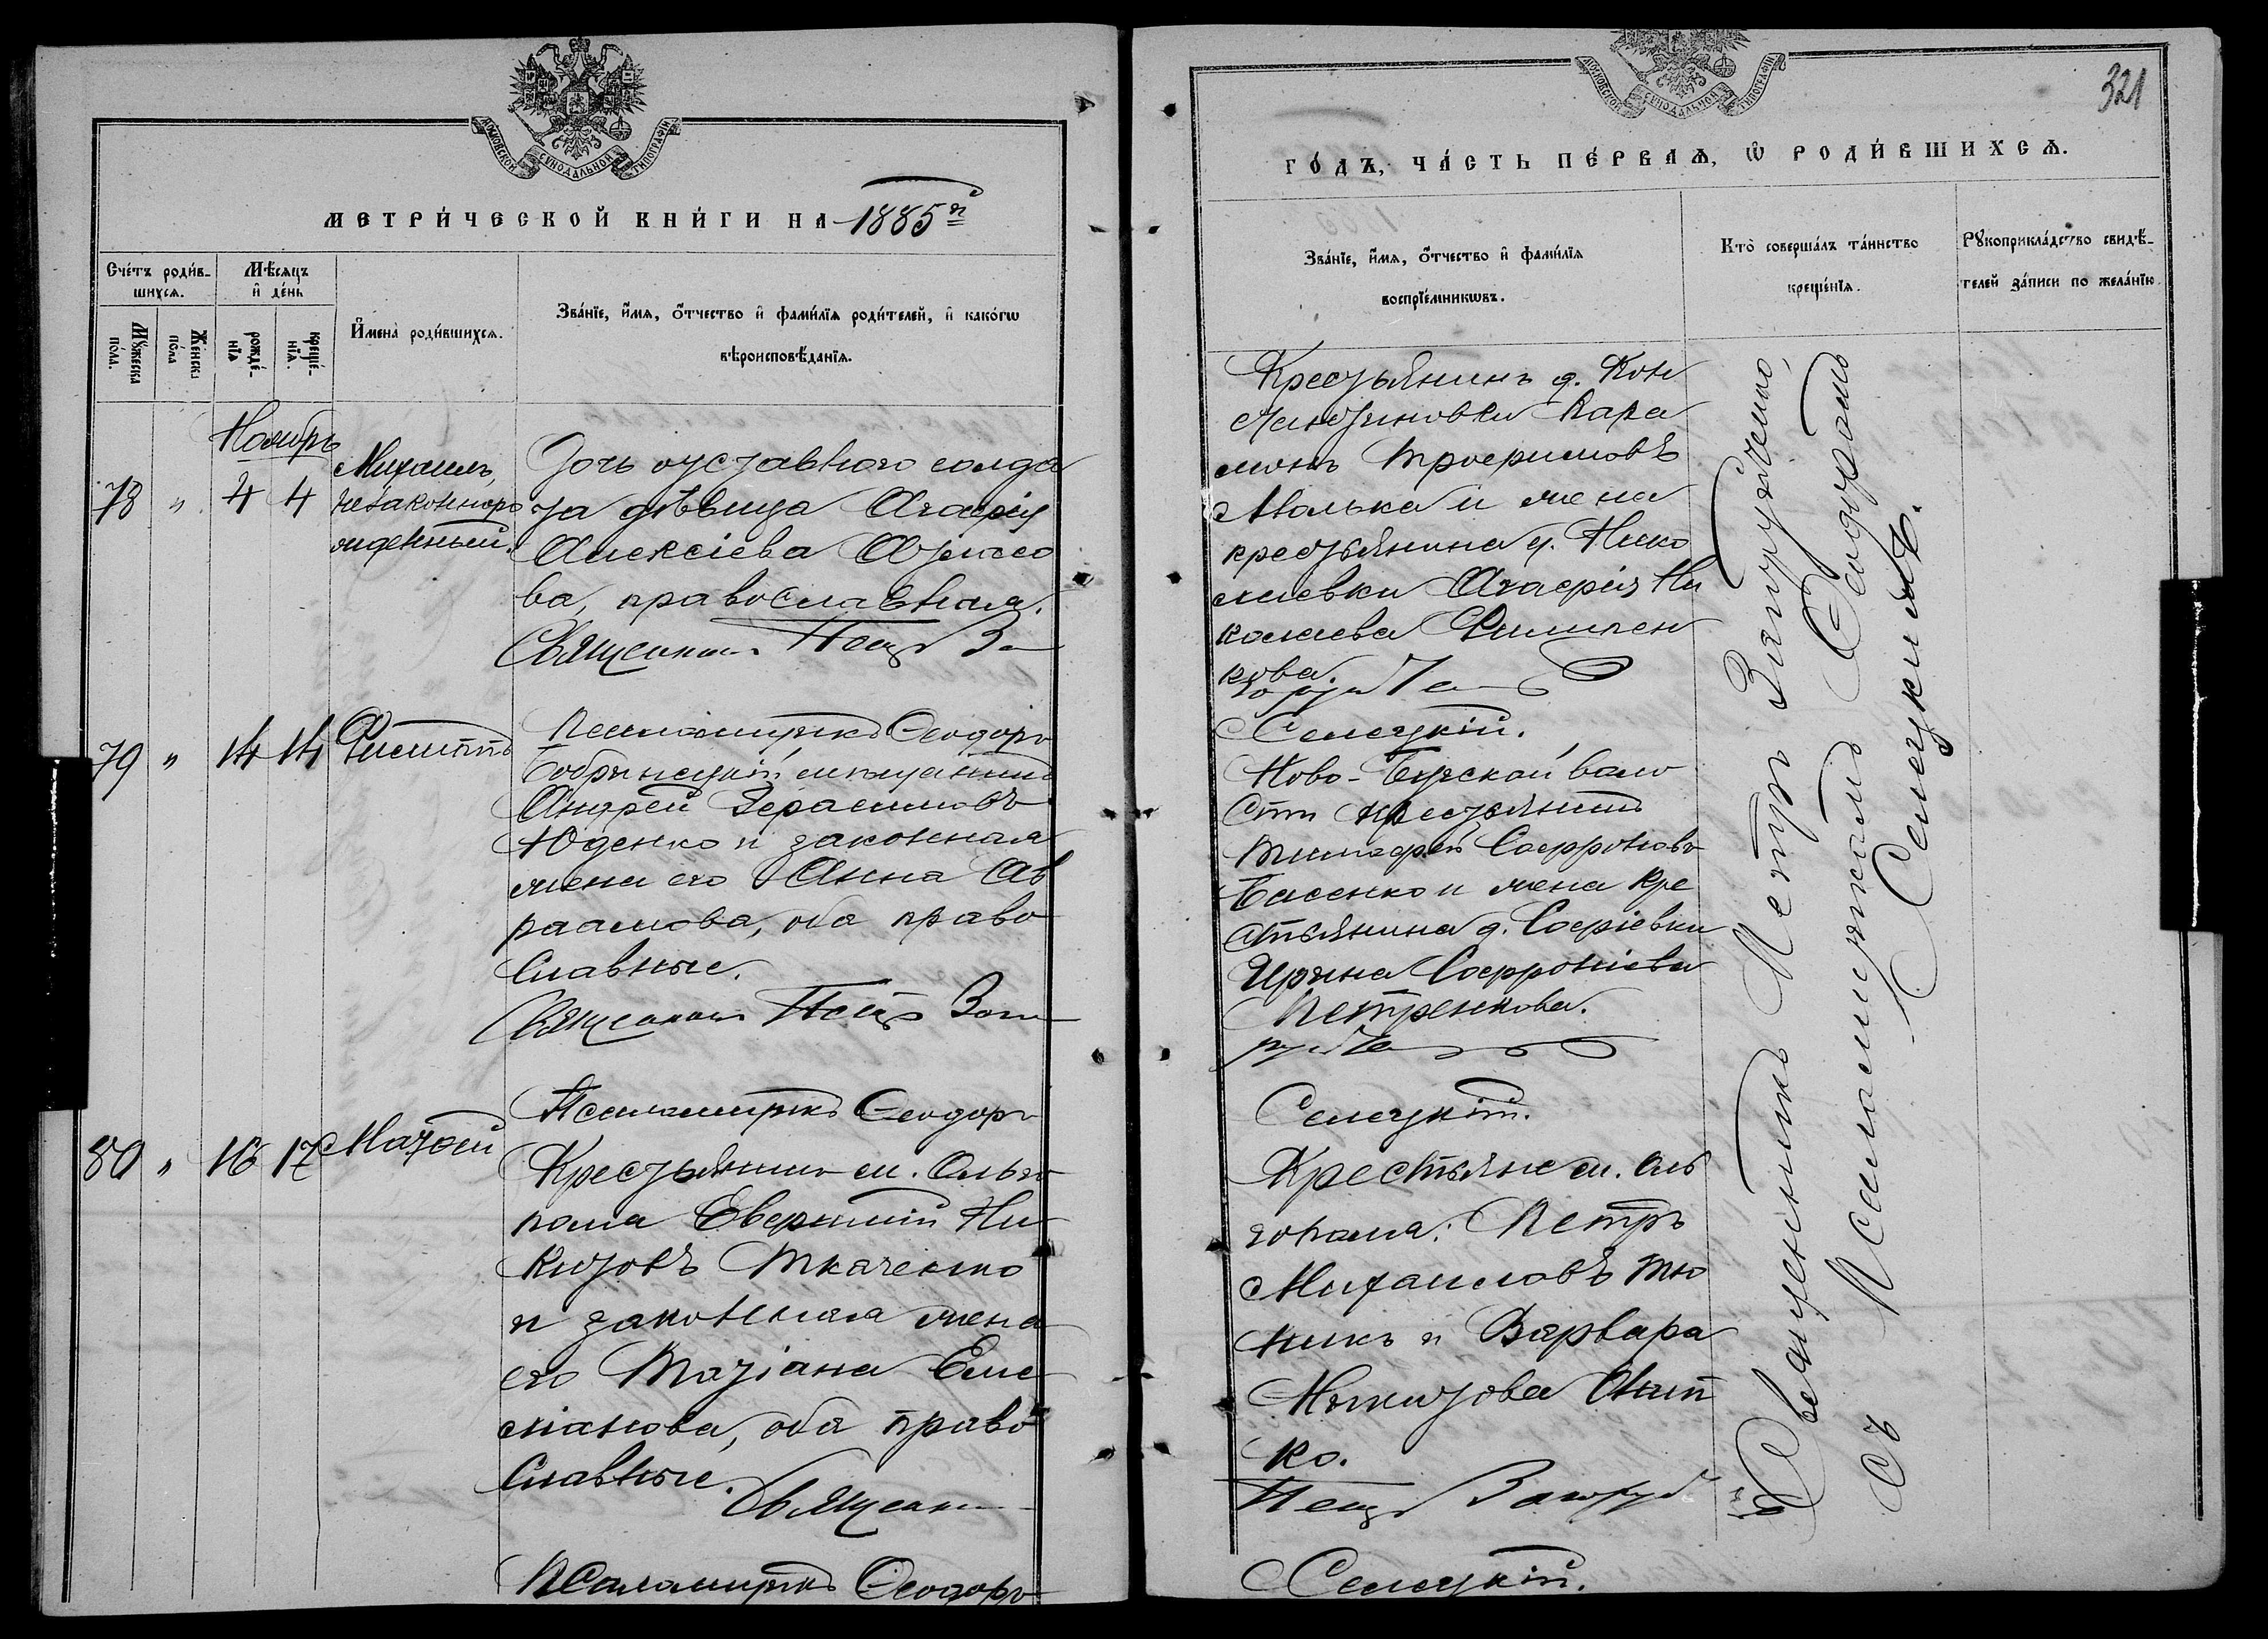 МОСКОВСКОЙ СѴНОДАЛЬНОЙ ТИПОГРАФІИ
МЕТРИ́ЧЕСКОЙ КНИ́ГИ НА 1885 г
Сче́тъ роди́в-
шихсѧ.
Мѣ́сѧцъ
и҆ де́нь
Мꙋ́жеска
по́ла.
Же́нска
по́ла
рожде́-
нїѧ
креще́-
нїѧ.
И҆мена̀ роди́вшихсѧ.
Зва́нїе, и҆́мѧ, ѻ҆́тчество и҆ фами́лїѧ роди́телей, и҆ како́гѡ
вѣроисповѣ́данїѧ.
Ноябрь
78 " 4 4
Михаилъ,
незаконноро
жденный.
Дочь отставного солда
та дѣвица Агафія
Алексіева
ва, православная.
Священникъ Петръ За
79 " 14 14 Филиппъ
Псаломщикъ Ѳеодоръ
Бобринецкій мѣщанинъ
Андрей Герасимовъ
Юденко и законная
жена его Анна Ав
раамова, оба право
славные.
Священникъ Петръ Заг
Псаломщикъ Ѳеодоръ
80 " 16 17 Матѳей
Крестьянинъ м. Ольго
поля Евфимій Ни
китовъ Ткаченко
и законная жена
его Татіана Еме
ліанова, оба право
славные.
Священн
Псаломщикъ Ѳеодоръ
321
МОСКОВСКОЙ СѴНОДАЛЬНОЙ ТИПОГРАФІИ
ГО́ДЪ, ЧА́СТЬ ПЕ́РВАѦ, Ѡ҆ РОДИ́ВШИХСѦ.
Зва́нїе, и҆́мѧ, ѻ҆́тчество и҆ фами́лїѧ
воспрїе́мникѡвъ.
Кто̀ соверша́лъ та́инство
креще́нїѧ.
Рꙋкоприкла́дство свидѣ́-
телей за́писи по жела́нїю.
Крестьянинъ д. Кон
стантиновки Пара
монъ Трофимовъ
Люлька и жена
крестьянина д. Нико
лаевки Агафія Ни
колаева Филипен
кова.
Селецкій.
Ново-Бугской воло
сти крестьянинъ
Тимофей Софроновъ
Басенко и жена кре
стьянина д. Софіевки
Ирина Софроніева
Петренкова.
Селецкій.
Крестьяне м. Оль
гополя: Петръ
Михаиловъ Тю
никъ и Варвара
Никитова Онип
ко.
Петръ Загруб
Селецкій.
Священникъ Петръ
съ Псаломщикомъ Ѳеодоромъ
Селецкимъ.